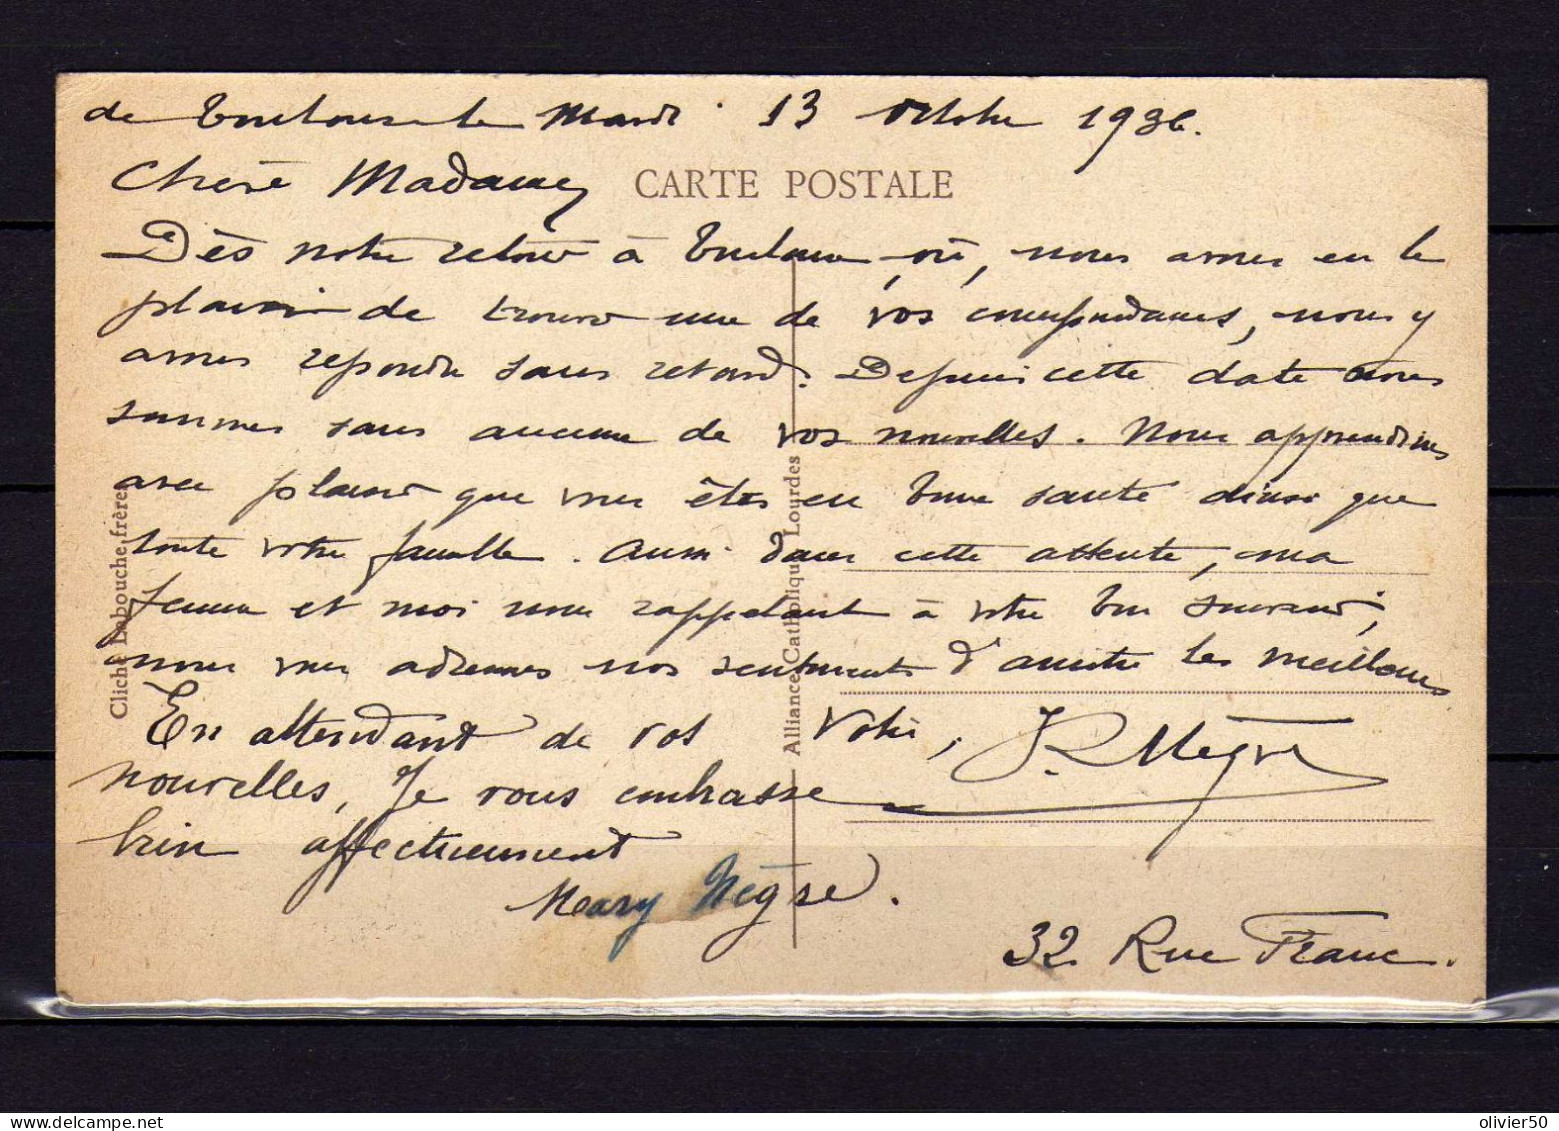 de Toulouse le Mardi 13 Octobre 1936.
Chère Madame,
CARTE POSTALE
Dès notre retour à Toulouse, où, nous avons eu le
plaisir de trouver une de vos correspondances, nous y
avons répondu sans retard. Depuis cette date nous
sommes sans aucune de vos nouvelles. Nous apprendrions
avec plaisir que vous êtes en bonne santé ainsi que
toute votre famille. Aussi dans cette attente, ma
femme et moi nous rappelant à votre bon souvenir,
nous vous adressons nos sentiments d'amitié les meilleurs
Votre,
En attendant de vos
nouvelles, Je vous embrasse
bien affectueusement
Mary Nègre.
Nègre
32 Rue Franc.
Cliché Labouche frères
Alliance Catholique Lourdes
olivier50